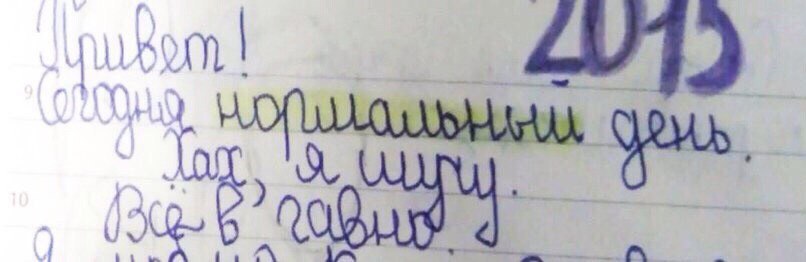 Привет!
2015
Сегодня нормальный день.
Хах, я шучу.
Всё в гавно.